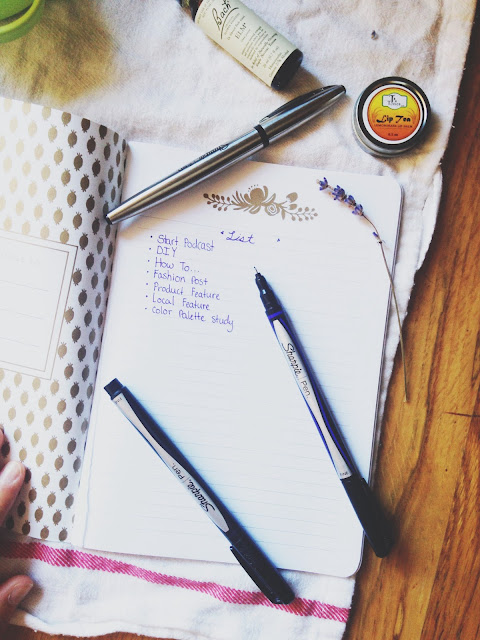 Bach
ELM
Lip Tea
Sharpie
"List"
• Start Podcast
• DIY
• How To...
• Fashion Post
• Product Feature
• Local Feature
• Color Palette Study
Sharpie Pen
Sharpie Pen.